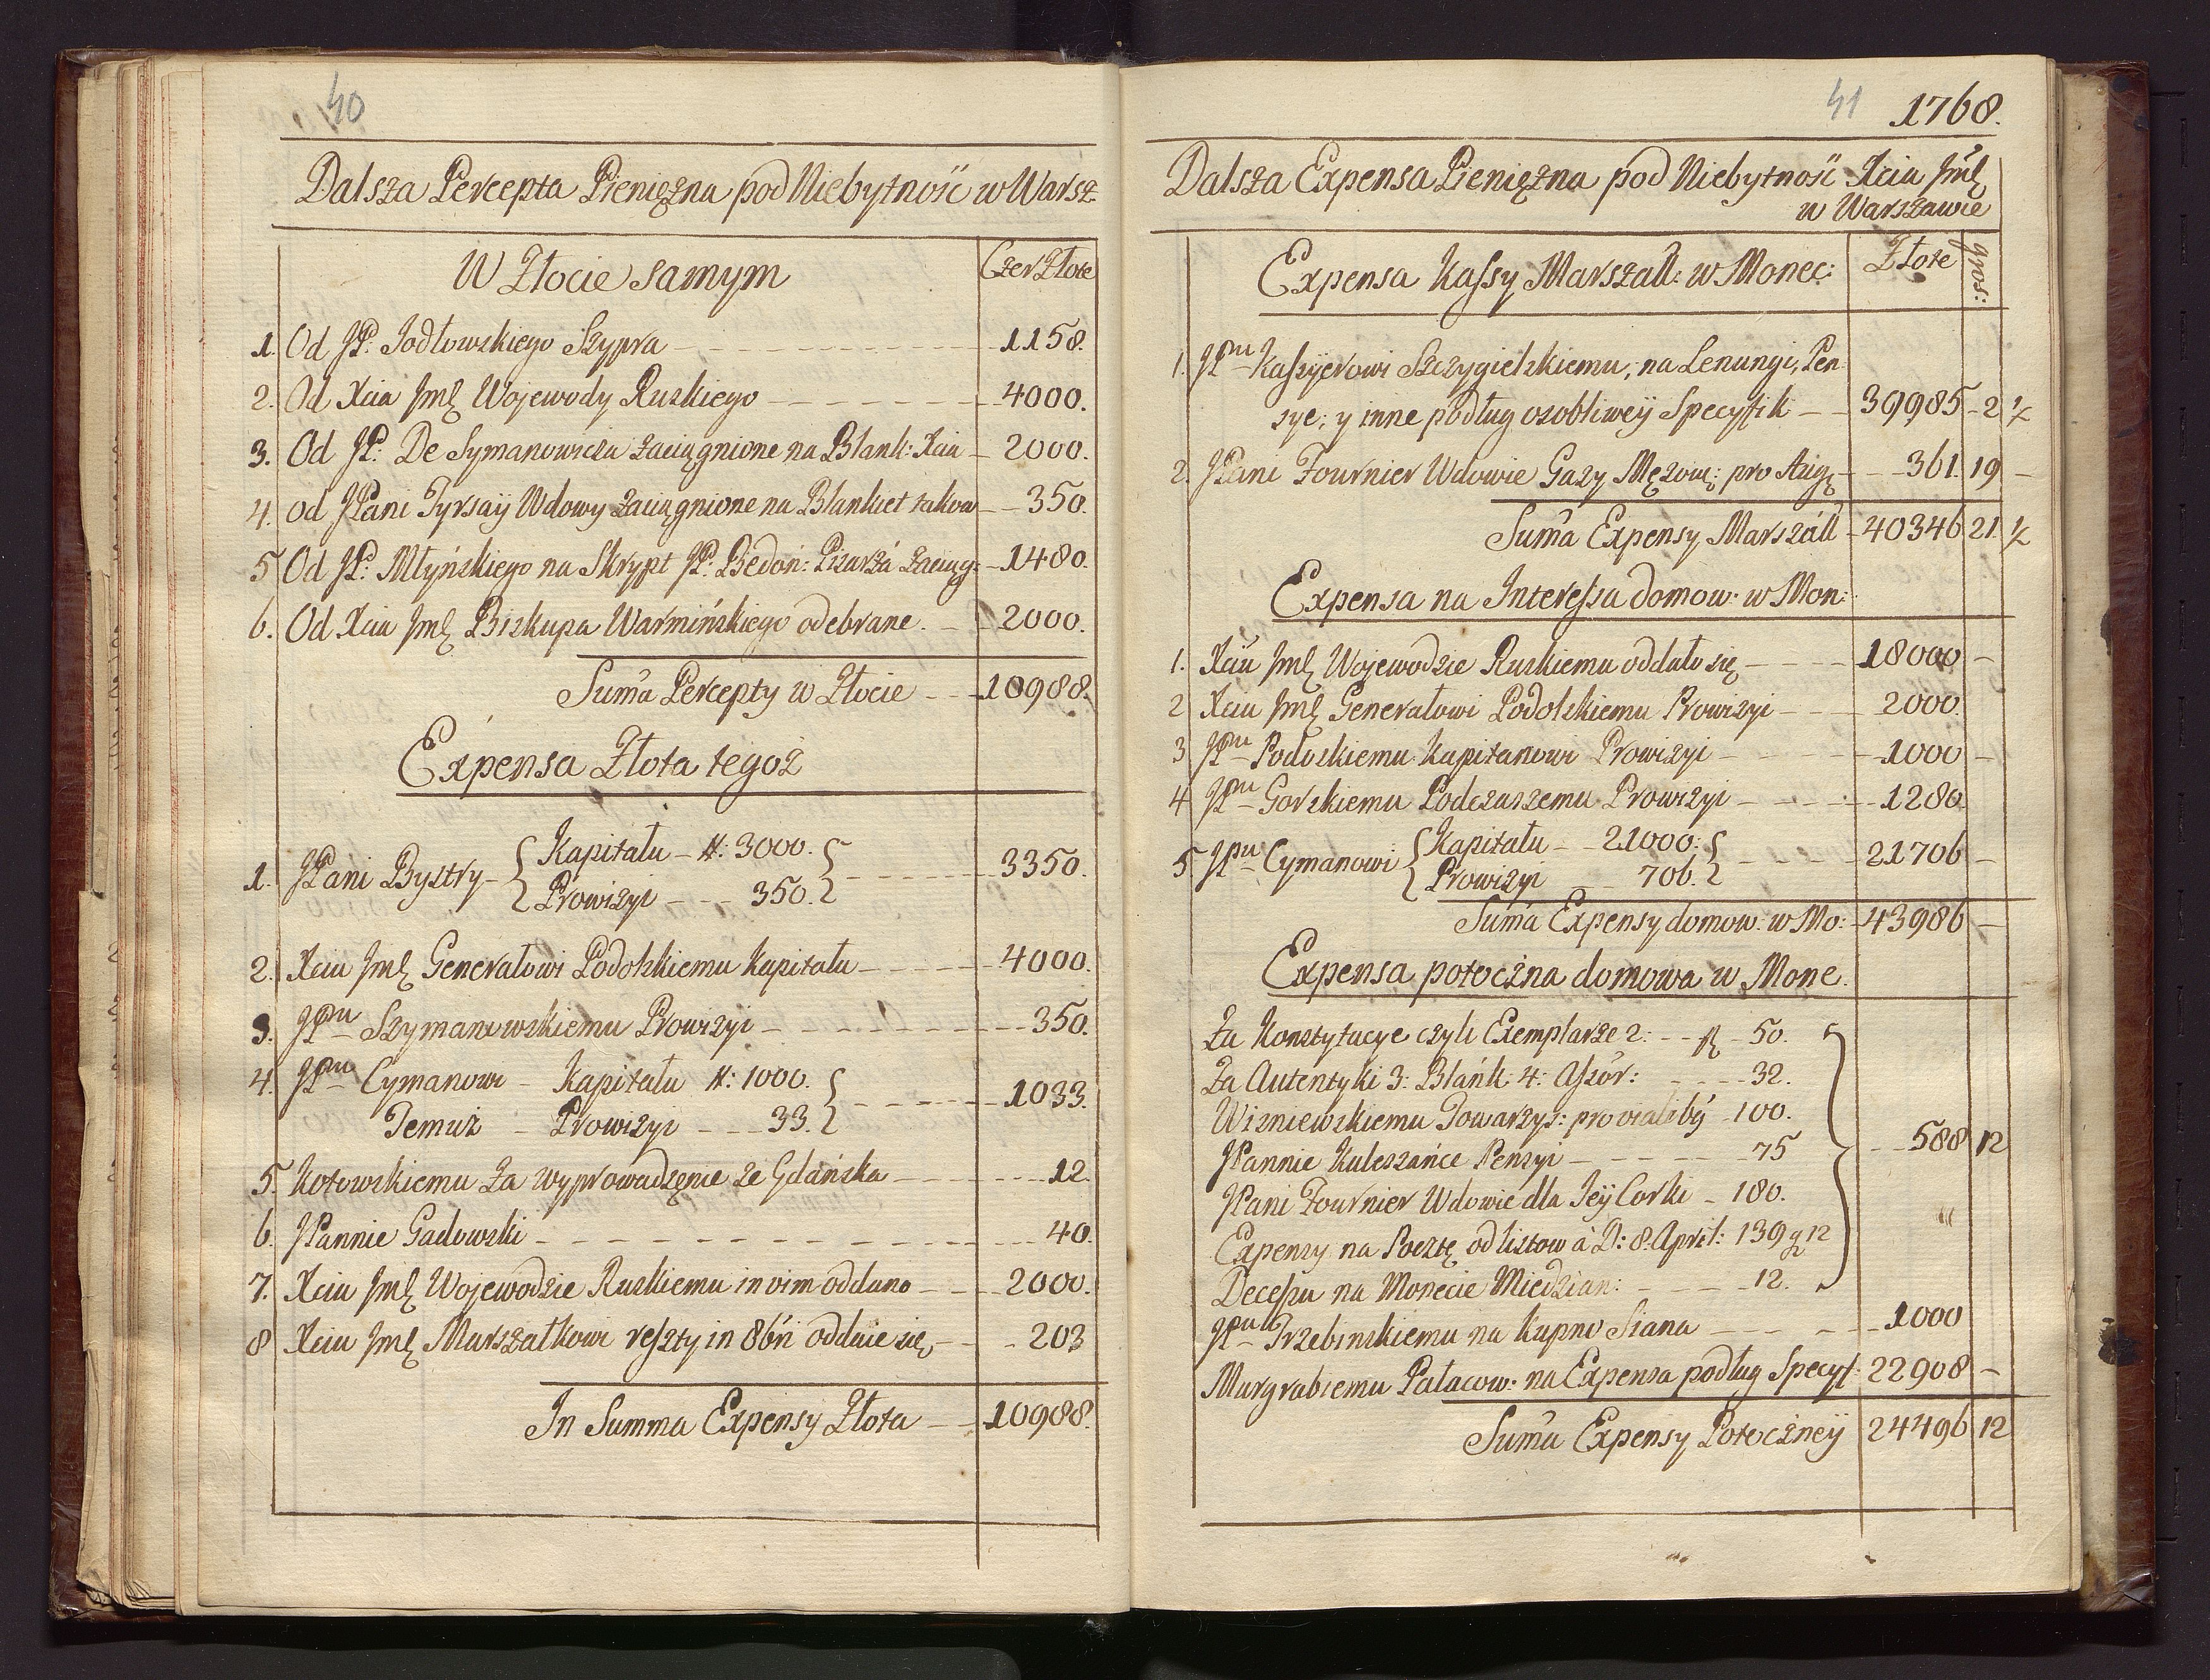 40
Dalsza Percepta Pieniężna pod Niebytność w Warsz.
W Złocie samym
Czer Złote
1. Od JP: Jodłowskiego Szypra 1158.
2. Od Xcia Jmę Wojewody Ruskiego 4000.
3. Od JP: De Symanowicza zaciągnione na Blank: Xcia 2000.
4. od JPani Tyrsaÿ Wdowy zaciągnione na Blankiet 350.
5 Od JP: Młyńskiego na Skrypt JP: Biedoń: Pisarzá zaciąg: 1480.
6. Od Xcia Jmę Biskupa Warmińskiego odebrane. 2000.
Sum̃a Percepty w Złocie 10988.
Expensa Złota tegoż
1. JPani Bystry Kapitału #: 3000.
Prowizyi 350. 3350.
2. Xciu Jmę Generałowi Podolskiemu Kapitału 4000.
3. JPnu Szymanowskiemu Prowizyi 350.
4. JPnu Cymanowi Kapitału #: 1000.
Temuż Prowizyi 33. 1033.
5. Kotowskiemu za wyprowadzęnie ze Gdańska 12.
6. JPannie Gadowski 40.
7. Xciu Jmę Wojewodzie Ruskiemu in vim oddano 2000.
8 Xciu Jmę Marszałkowi reszty in 8bri oddaie się 203
In Summa Expensy Złota 10988.
41 1768.
Dalsza Expensa Pieniężna pod Niebytność Xcia Jmę
w Warszawie
Expensa Kassy Marszałł: w Monec: Złote gros:
1. JPnu Kassÿerowi Szczygielskiemu, na Lenungi, Pen
sye, y inne podług osobliweÿ Specyfik 39985 2 ½
2. JPani Fournier Wdowie Gazy Mężow: pro Augę 361. 19
Sum̃a Expensy Marszáłł 40346 21. ½
Expensa na Interessa domow: w Mon:
1. Xciu Jmę Wojewodzie Ruskiemu oddało się 18000
2 Xciu Jmę Generałowi Podolskiemu Prowizyi 2000.
3 JPnu Podoskiemu Kapitanowi Prowizyi 1000
4 JPnu Gorskiemu Podczaszemu Prowizyi 1280.
5 JPnu Cymanowi Kapitału 21000.
Prowizyi 706. 21706
Sum̃a Expensy domow: w Mo: 43986
Expensa potoczna domowa w Mone.
Za Konstytucye czyli Exemplarze 2: fl 50.
Za Autentyki 3: Blańk: 4: Assór: 32.
Wiszniewskiemu Towarzys: pro vialibÿ 100.
JPannie Kuleszańce Pensyi 75
JPani Fournier Wdowie dla Jeÿ Corki 180.
Expensy na Pocztę od listow à D: 8. April: 139 g 12
Decessu na Monecie Miedzian: 12.
588 12
JPnu Trzebinskiemu na kupno Siana 1000
Murgrabiemu Pałacow: na Expensa podług Specyf: 22908
Sum̃a Expensy Potoczneÿ 24496 12